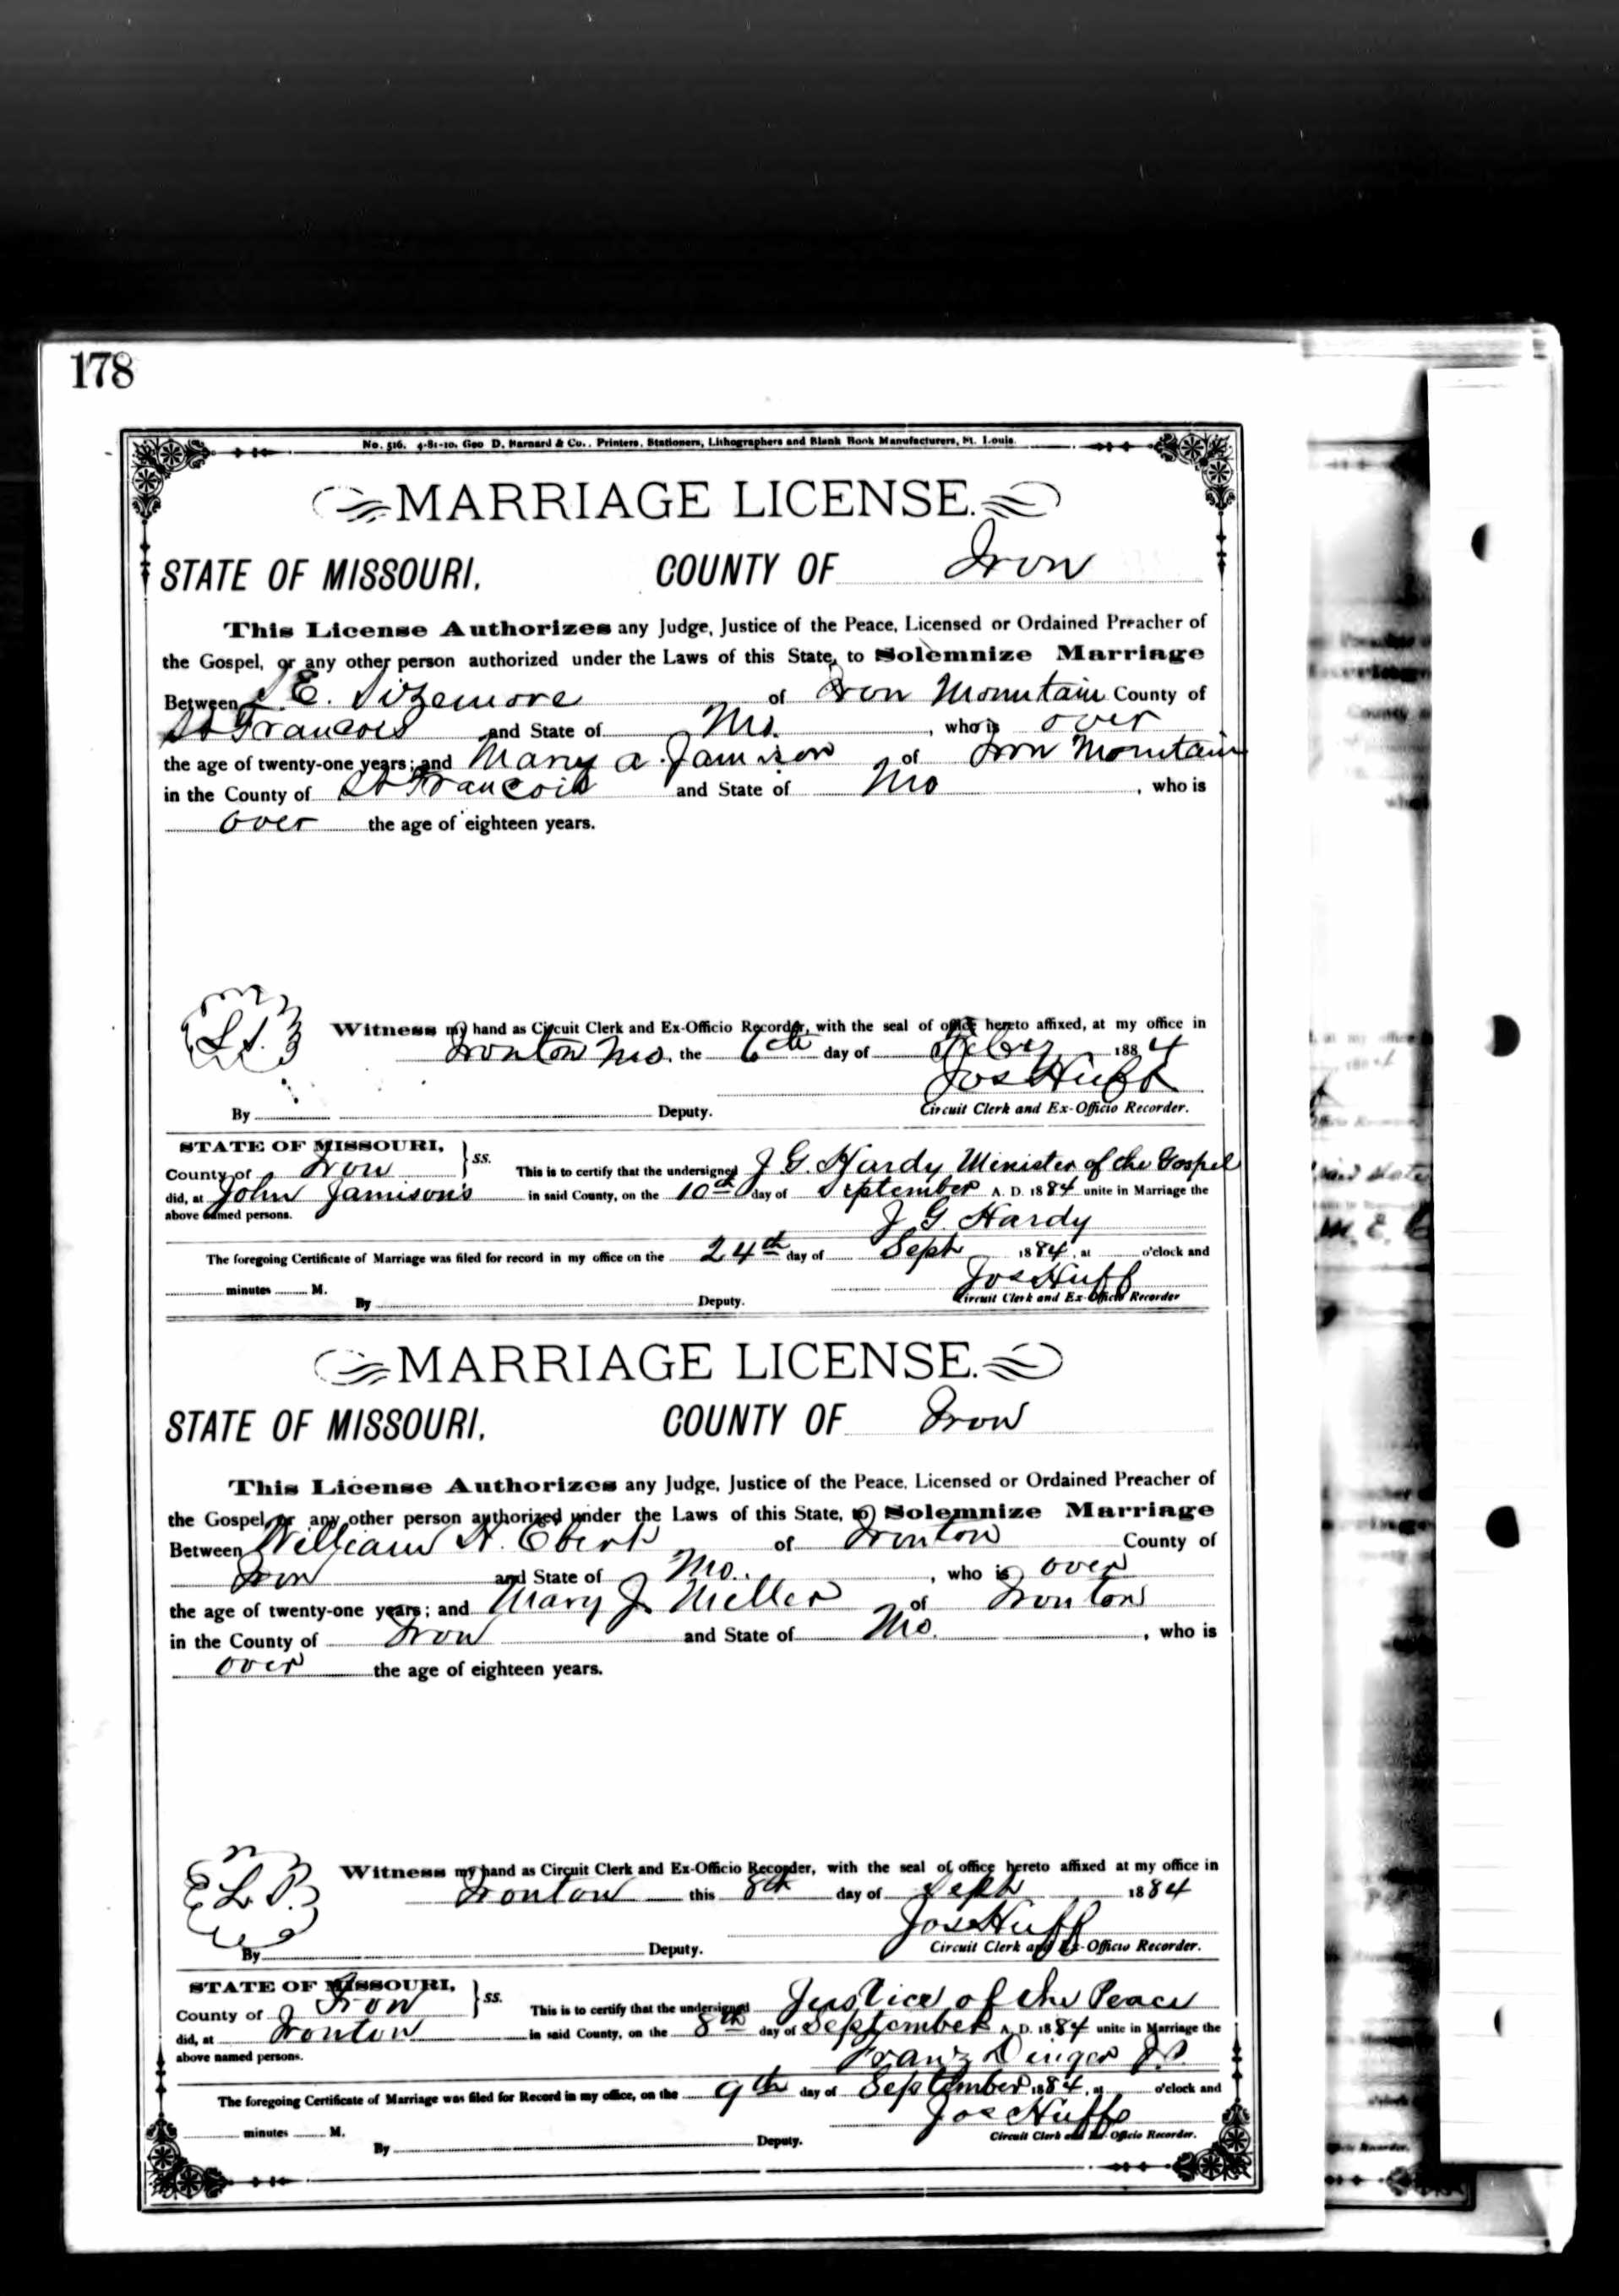 178
No. 516. 4-81-10. Geo D. Barnard & Co., Printers, Stationers, Lithographers and Blank Book Manufacturers, St. Louis.
MARRIAGE LICENSE.
STATE OF MISSOURI, COUNTY OF Iron
This License Authorizes any Judge, Justice of the Peace, Licensed or Ordained Preacher of
the Gospel, or any other person authorized under the Laws of this State, to Solemnize Marriage
Between E. Sizemore of Iron Mountain County of
St Francois and State of Mo. , who is over
the age of twenty-one years; and Mary A. Jamison of Iron Mountain
in the County of St Francois and State of Mo , who is
over the age of eighteen years.
L S.
Witness my hand as Circuit Clerk and Ex-Officio Recorder, with the seal of office hereto affixed, at my office in
Ironton Mo. the 6th day of 1884
Jos Huff
By Deputy. Circuit Clerk and Ex-Officio Recorder.
STATE OF MISSOURI, } ss.
County of Iron This is to certify that the undersigned J G. Hardy Minister of the Gospel
did, at John Jamison's in said County, on the 10th day of September A. D. 1884 unite in Marriage the
above named persons.
J G. Hardy
The foregoing Certificate of Marriage was filed for record in my office on the 24th day of Sept 1884, at o'clock and
minutes M. Jos Huff
By Deputy. Circuit Clerk and Ex-Officio Recorder
MARRIAGE LICENSE.
STATE OF MISSOURI, COUNTY OF Iron
This License Authorizes any Judge, Justice of the Peace, Licensed or Ordained Preacher of
the Gospel, or any other person authorized under the Laws of this State, to Solemnize Marriage
Between William H. Ebert of Ironton County of
Iron and State of Mo. , who is over
the age of twenty-one years; and Mary J. Miller of Ironton
in the County of Iron and State of Mo. , who is
over the age of eighteen years.
L S.
Witness my hand as Circuit Clerk and Ex-Officio Recorder, with the seal of office hereto affixed at my office in
Ironton this 8th day of Sept 1884
Jos Huff
By Deputy. Circuit Clerk and Ex-Officio Recorder.
STATE OF MISSOURI, } ss.
County of Iron This is to certify that the undersigned Justice of the Peace
did, at Ironton in said County, on the 8th day of September A. D. 1884 unite in Marriage the
above named persons.
Franz Dinger J.P.
The foregoing Certificate of Marriage was filed for Record in my office, on the 9th day of September 1884, at o'clock and
minutes M. Jos Huff
By Deputy. Circuit Clerk and Ex-Officio Recorder.